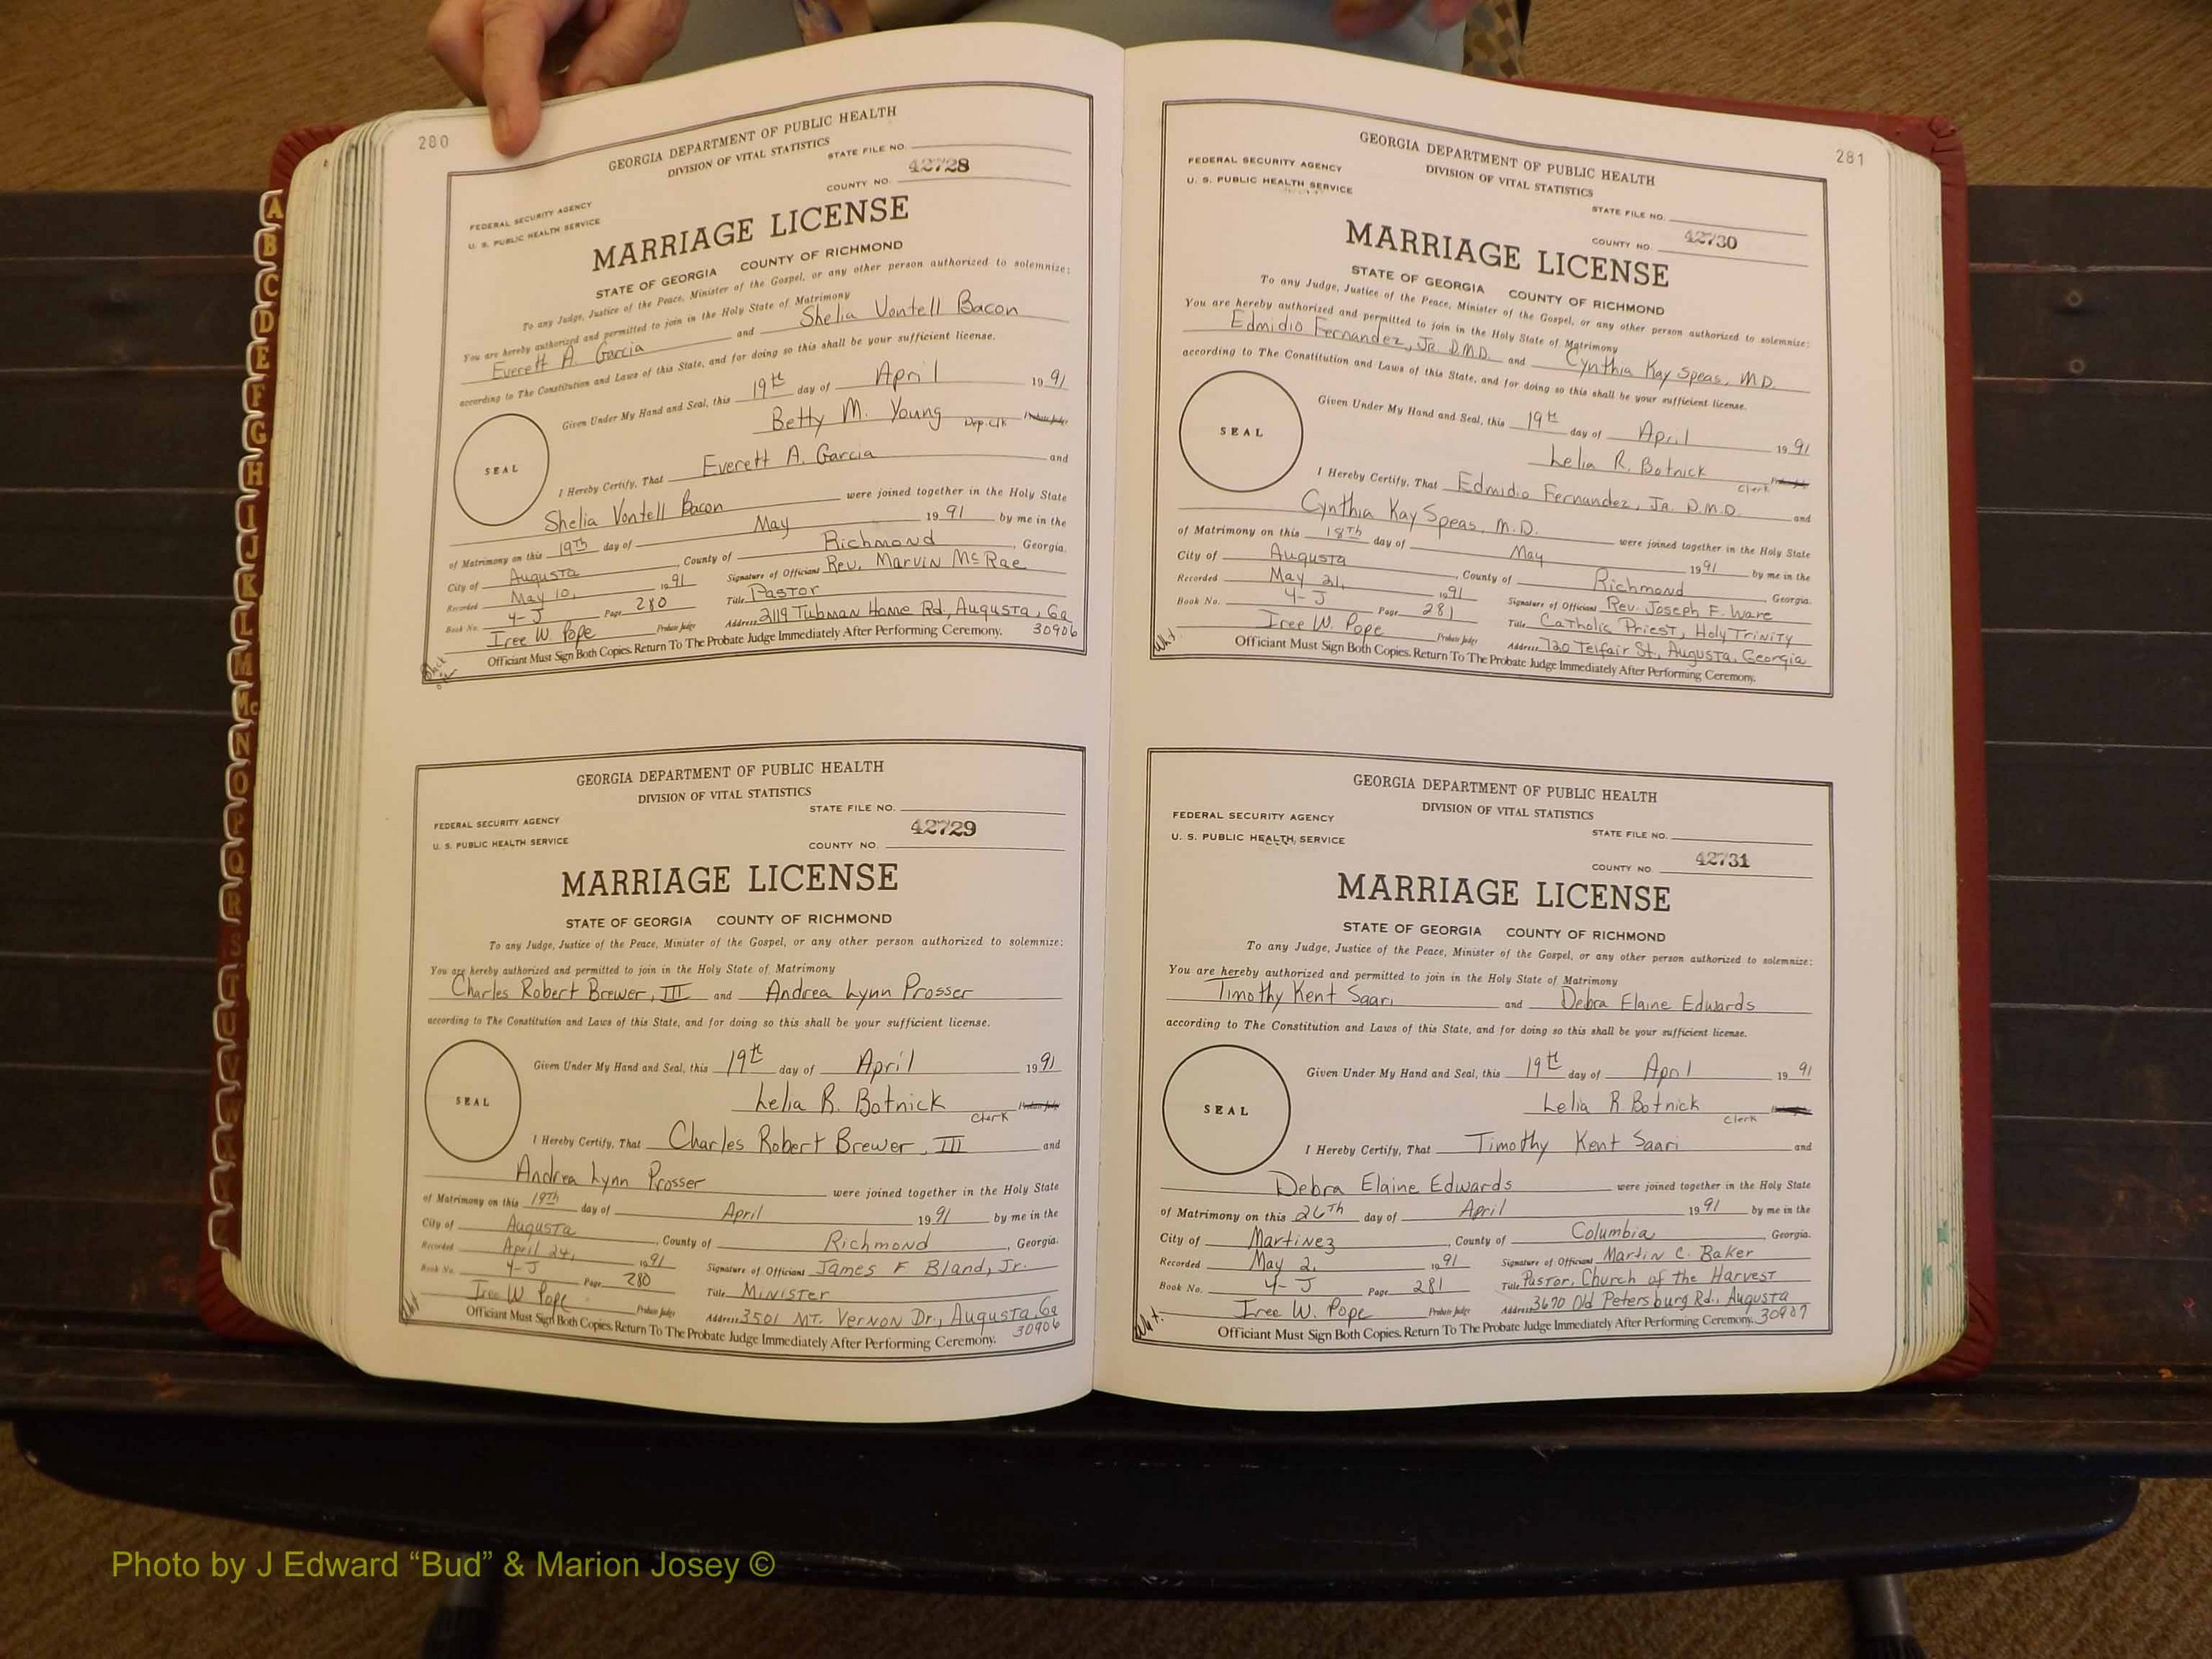 280
GEORGIA DEPARTMENT OF PUBLIC HEALTH
DIVISION OF VITAL STATISTICS
STATE FILE NO.
42728
COUNTY NO.
FEDERAL SECURITY AGENCY
U. S. PUBLIC HEALTH SERVICE
MARRIAGE LICENSE
STATE OF GEORGIA COUNTY OF RICHMOND
To any Judge, Justice of the Peace, Minister of the Gospel, or any other person authorized to solemnize:
You are hereby authorized and permitted to join in the Holy State of Matrimony
Everett A. Garcia and Shelia Vontell Bacon
according to The Constitution and Laws of this State, and for doing so this shall be your sufficient license.
Given Under My Hand and Seal, this 19th day of April 1991
Betty M. Young Dep. Clk Probate Judge
SEAL
I Hereby Certify, That Everett A. Garcia and
Shelia Vontell Bacon were joined together in the Holy State
of Matrimony on this 19Th day of May 1991 by me in the
City of Augusta, County of Richmond, Georgia.
Recorded May 10, 1991 Signature of Officiant Rev. Marvin McRae
Book No. 4-J Page 280 Title Pastor
Iree W. Pope Probate Judge Address 2119 Tubman Home Rd, Augusta, Ga
30906
Officiant Must Sign Both Copies. Return To The Probate Judge Immediately After Performing Ceremony.
GEORGIA DEPARTMENT OF PUBLIC HEALTH
DIVISION OF VITAL STATISTICS
STATE FILE NO.
FEDERAL SECURITY AGENCY
42729
U. S. PUBLIC HEALTH SERVICE
COUNTY NO.
MARRIAGE LICENSE
STATE OF GEORGIA COUNTY OF RICHMOND
To any Judge, Justice of the Peace, Minister of the Gospel, or any other person authorized to solemnize:
You are hereby authorized and permitted to join in the Holy State of Matrimony
Charles Robert Brewer, III and Andrea Lynn Prosser
according to The Constitution and Laws of this State, and for doing so this shall be your sufficient license.
Given Under My Hand and Seal, this 19th day of April 1991
Lelia R. Botnick Clerk Probate Judge
SEAL
I Hereby Certify, That Charles Robert Brewer, III and
Andrea Lynn Prosser were joined together in the Holy State
of Matrimony on this 19Th day of April 1991 by me in the
City of Augusta, County of Richmond, Georgia.
Recorded April 24, 1991 Signature of Officiant James F Bland, Jr.
Book No. 4-J Page 280 Title Minister
Iree W. Pope Probate Judge Address 3501 Mt. Vernon Dr., Augusta, Ga
30906
Officiant Must Sign Both Copies. Return To The Probate Judge Immediately After Performing Ceremony.
281
GEORGIA DEPARTMENT OF PUBLIC HEALTH
DIVISION OF VITAL STATISTICS
FEDERAL SECURITY AGENCY
U. S. PUBLIC HEALTH SERVICE
STATE FILE NO.
COUNTY NO. 42730
MARRIAGE LICENSE
STATE OF GEORGIA COUNTY OF RICHMOND
To any Judge, Justice of the Peace, Minister of the Gospel, or any other person authorized to solemnize:
You are hereby authorized and permitted to join in the Holy State of Matrimony
Edmidio Fernandez, Jr. D.M.D. and Cynthia Kay Speas, M.D.
according to The Constitution and Laws of this State, and for doing so this shall be your sufficient license.
Given Under My Hand and Seal, this 19th day of April 1991
Lelia R. Botnick Clerk Probate Judge
SEAL
I Hereby Certify, That Edmidio Fernandez, Jr. D.M.D. and
Cynthia Kay Speas, M.D. were joined together in the Holy State
of Matrimony on this 18Th day of May 1991 by me in the
City of Augusta, County of Richmond Georgia.
Recorded May 21, 1991 Signature of Officiant Rev. Joseph F. Ware
Book No. 4-J Page 281 Title Catholic Priest, Holy Trinity
Iree W. Pope Probate Judge Address 720 Telfair St., Augusta, Georgia
Officiant Must Sign Both Copies. Return To The Probate Judge Immediately After Performing Ceremony.
GEORGIA DEPARTMENT OF PUBLIC HEALTH
DIVISION OF VITAL STATISTICS
FEDERAL SECURITY AGENCY
STATE FILE NO.
U. S. PUBLIC HEALTH SERVICE
COUNTY NO 42731
MARRIAGE LICENSE
STATE OF GEORGIA COUNTY OF RICHMOND
To any Judge, Justice of the Peace, Minister of the Gospel, or any other person authorized to solemnize:
You are hereby authorized and permitted to join in the Holy State of Matrimony
Timothy Kent Saari and Debra Elaine Edwards
according to The Constitution and Laws of this State, and for doing so this shall be your sufficient license.
Given Under My Hand and Seal, this 19th day of April 1991
Lelia R Botnick Clerk
SEAL
I Hereby Certify, That Timothy Kent Saari and
Debra Elaine Edwards were joined together in the Holy State
of Matrimony on this 26Th day of April 1991 by me in the
City of Martinez, County of Columbia, Georgia.
Recorded May 2, 1991 Signature of Officiant Martin C. Baker
Book No. 4-J Page 281 Title Pastor, Church of the Harvest
Iree W. Pope Probate Judge Address 3670 Old Petersburg Rd., Augusta
30907
Officiant Must Sign Both Copies. Return To The Probate Judge Immediately After Performing Ceremony.
A
B
C
D
E
F
G
H
I
J
K
L
M
Mc
N
O
P
Q
R
S
T
U
V
W
Photo by J Edward “Bud” & Marion Josey ©